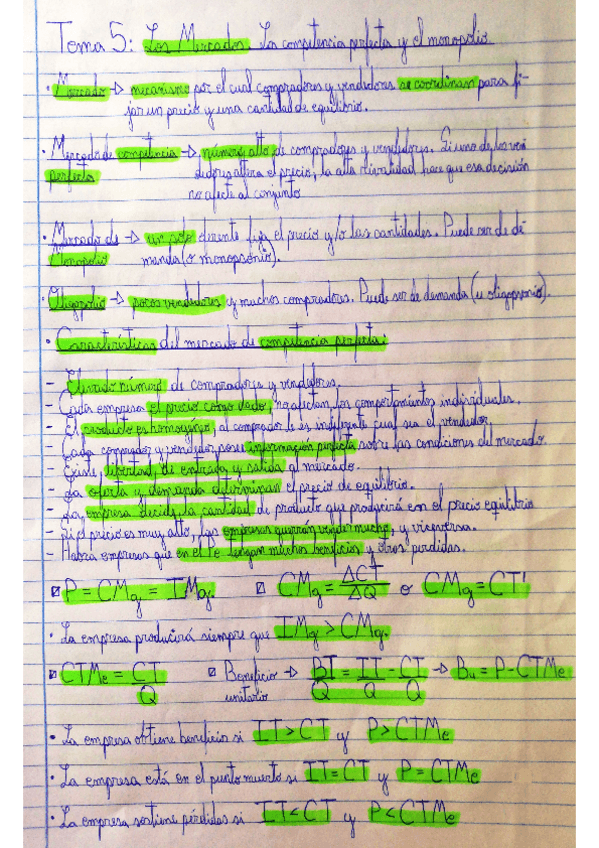 Tema 5: Los Mercados. La competencia perfecta y el monopolio
· Mercado → mecanismo por el cual compradores y vendedores se coordinan para fi-
jar un precio y una cantidad de equilibrio.
· Mercado de competencia → número alto de compradores y vendedores. Si uno de los ven
perfecta dedores altera el precio, la alta rivalidad hace que esa decisión
no afecte al conjunto
· Mercado de → un solo oferente fija el precio y/o las cantidades. Puede ser de de
Monopolio manda (o monopsonio).
· Oligopolio → pocos vendedores y muchos compradores. Puede ser de demanda (u oligopsonio).
· Características del mercado de competencia perfecta:
- Elevado número de compradores y vendedores.
- Cada empresa el precio como dado, no afectan los comportamientos individuales.
- El producto es homogéneo, al comprador le es indiferente cual sea el vendedor.
- Cada comprador y vendedor posee información perfecta sobre las condiciones del mercado.
- Existe libertad de entrada y salida al mercado.
- La oferta y demanda determinan el precio de equilibrio.
- La empresa decide la cantidad de producto que producirá con el precio equilibrio
- Si el precio es muy alto, las empresas querrán vender mucho, y viceversa.
- Habrá empresas que en el Pe tengan muchos beneficios y otras perdidas.
☑ P = CMg = IMg. ☑ CMg = ΔCT/ΔQ o CMg = CT'
· La empresa producirá siempre que IMg > CMg.
☑ CTMe = CT/Q ☑ Beneficio unitario → BT/Q = IT/Q - CT/Q → Bu = P - CTMe
· La empresa obtiene beneficios si IT > CT y P > CTMe
· La empresa está en el punto muerto si IT = CT y P = CTMe
· La empresa sostiene pérdidas si IT < CT y P < CTMe